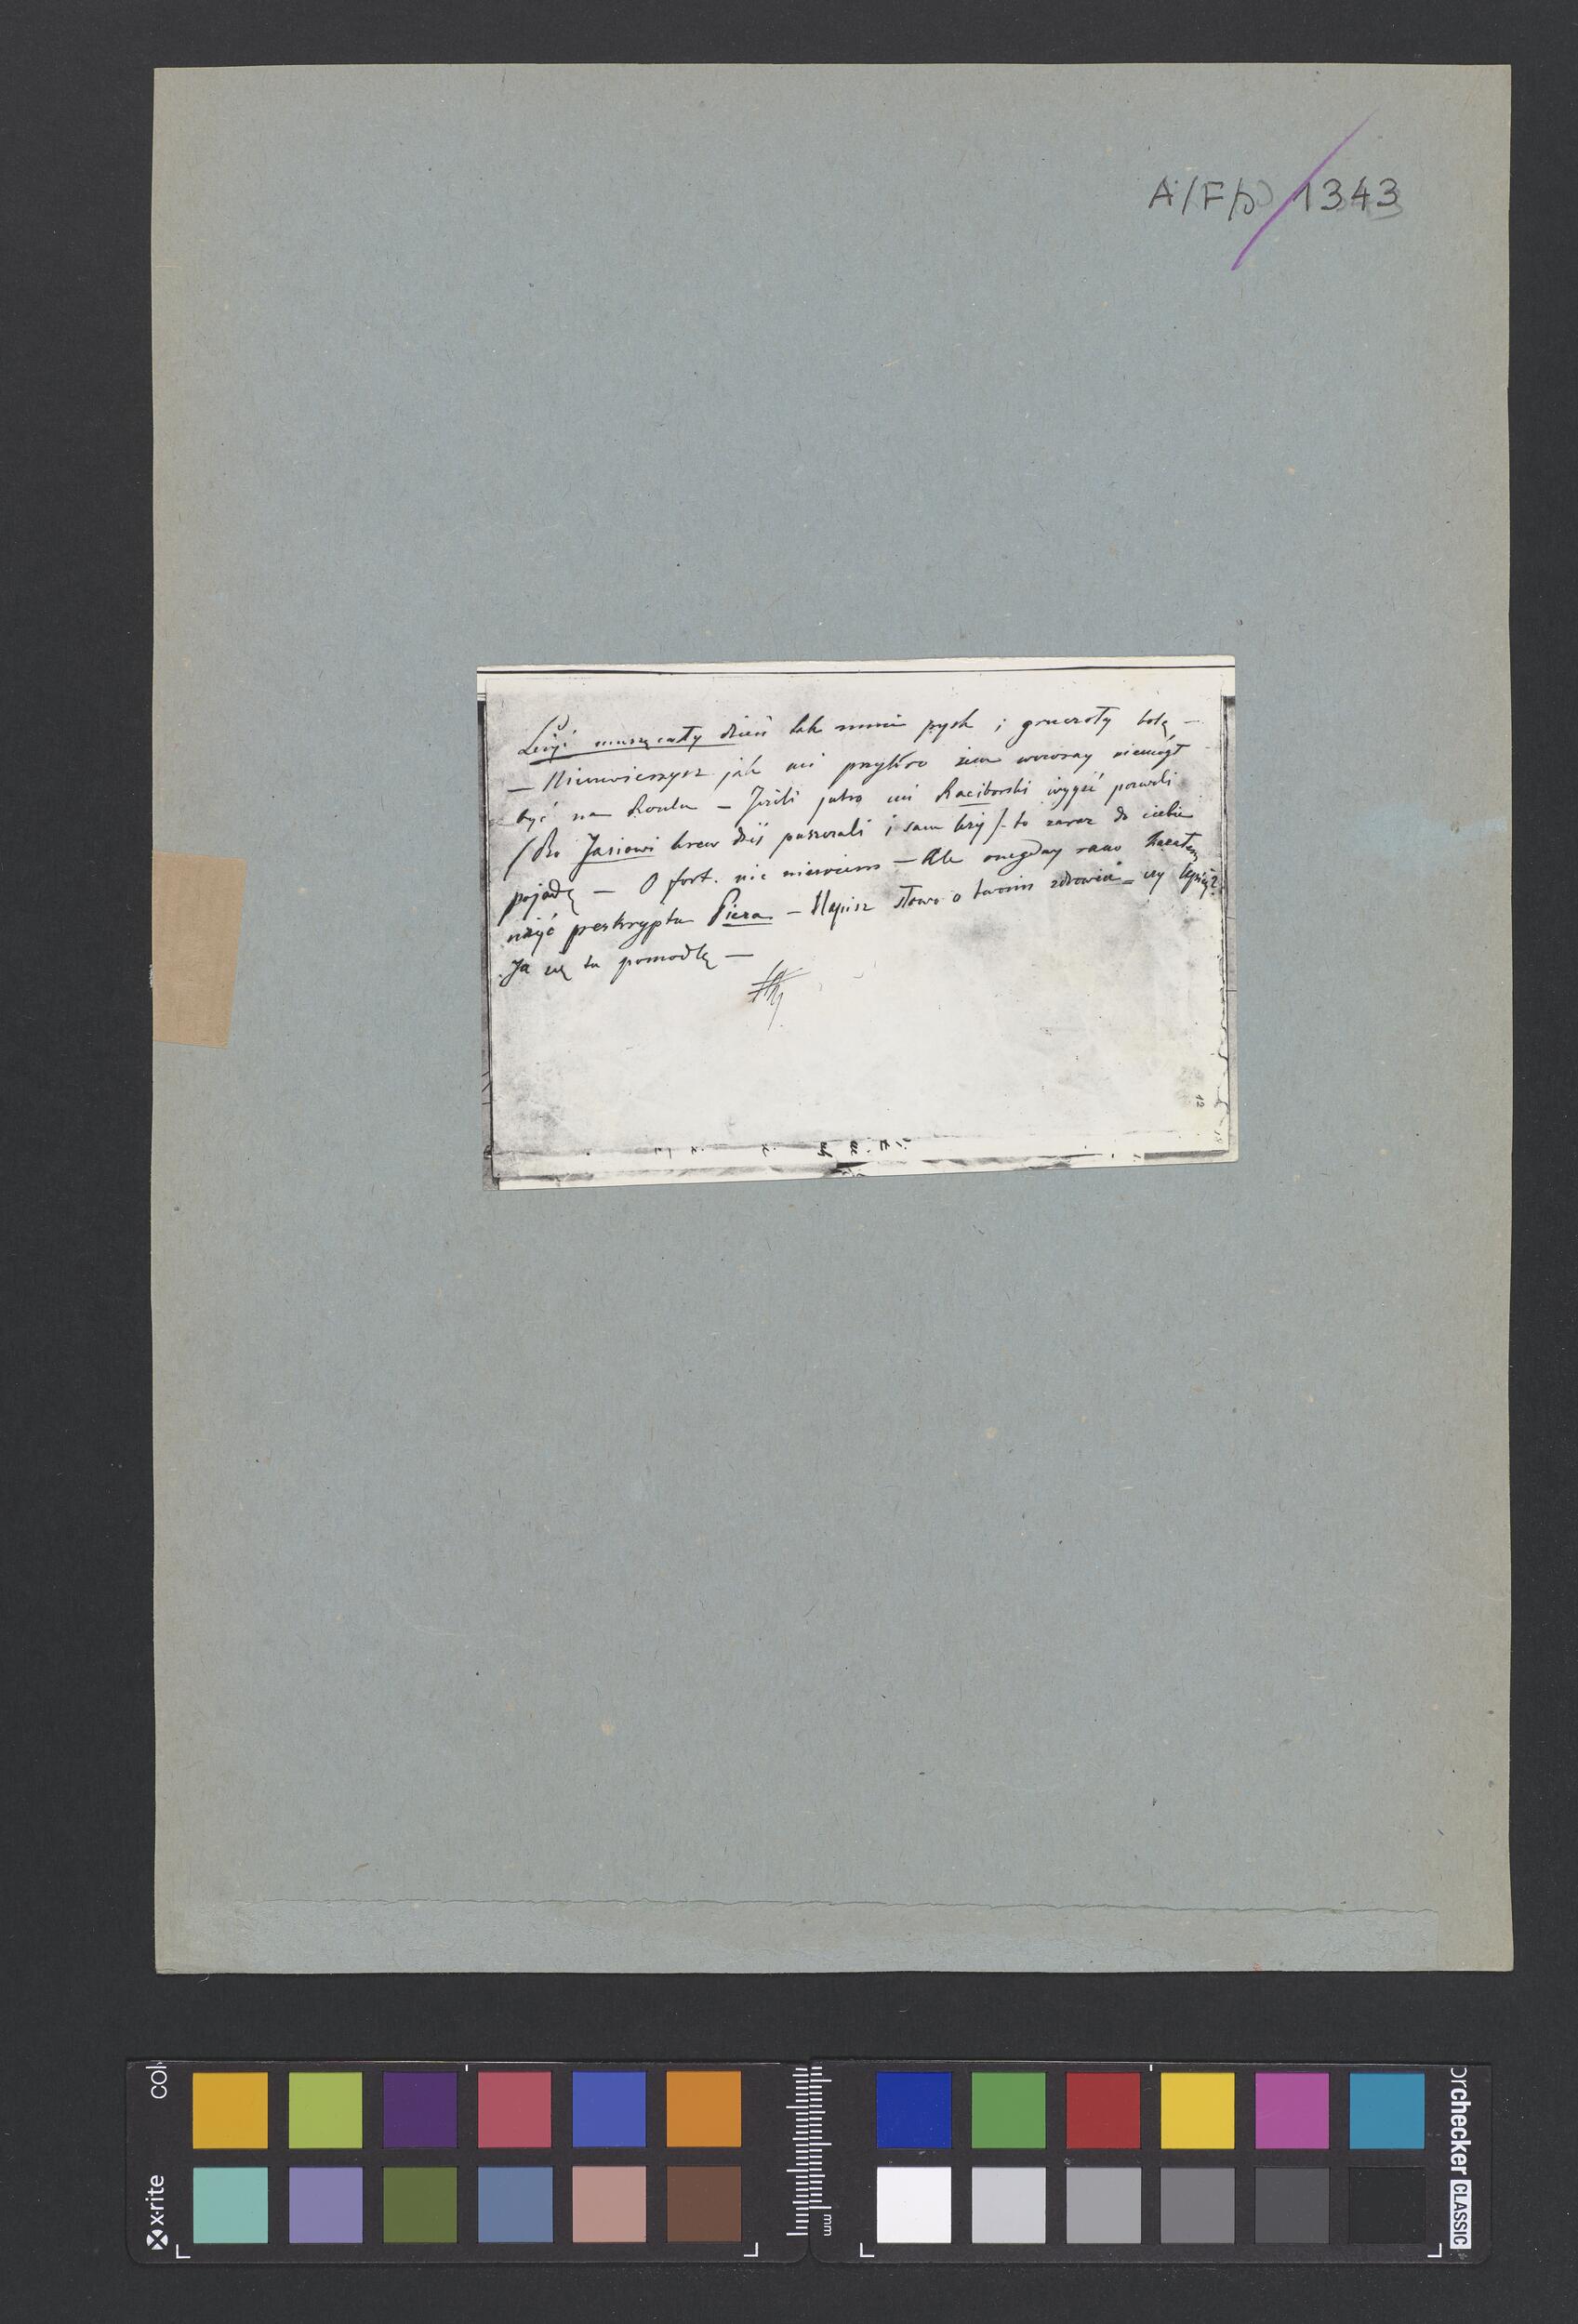 A/F/D 1343
Leżyć muszę cały dzień tak mnie pysk i gruczoły bolą —
— Nieuwierzysz jak mi przykro żem wczoray niemógł
być na Roulu — Jeżeli jutro mi Raciborski wyyść pozwoli
(Bo Jasiowi krew dziś puszczali i sam leży) to zaraz do ciebie
pojadę — O fort. nic niewiem — Ale onegday rano kazałem
użyć preskryptu Piera — Napisz słowo o twoim zdrowiu = czy lepiéj?
Ja się tu pomodlę —
12
x·rite
mm
checker CLASSIC